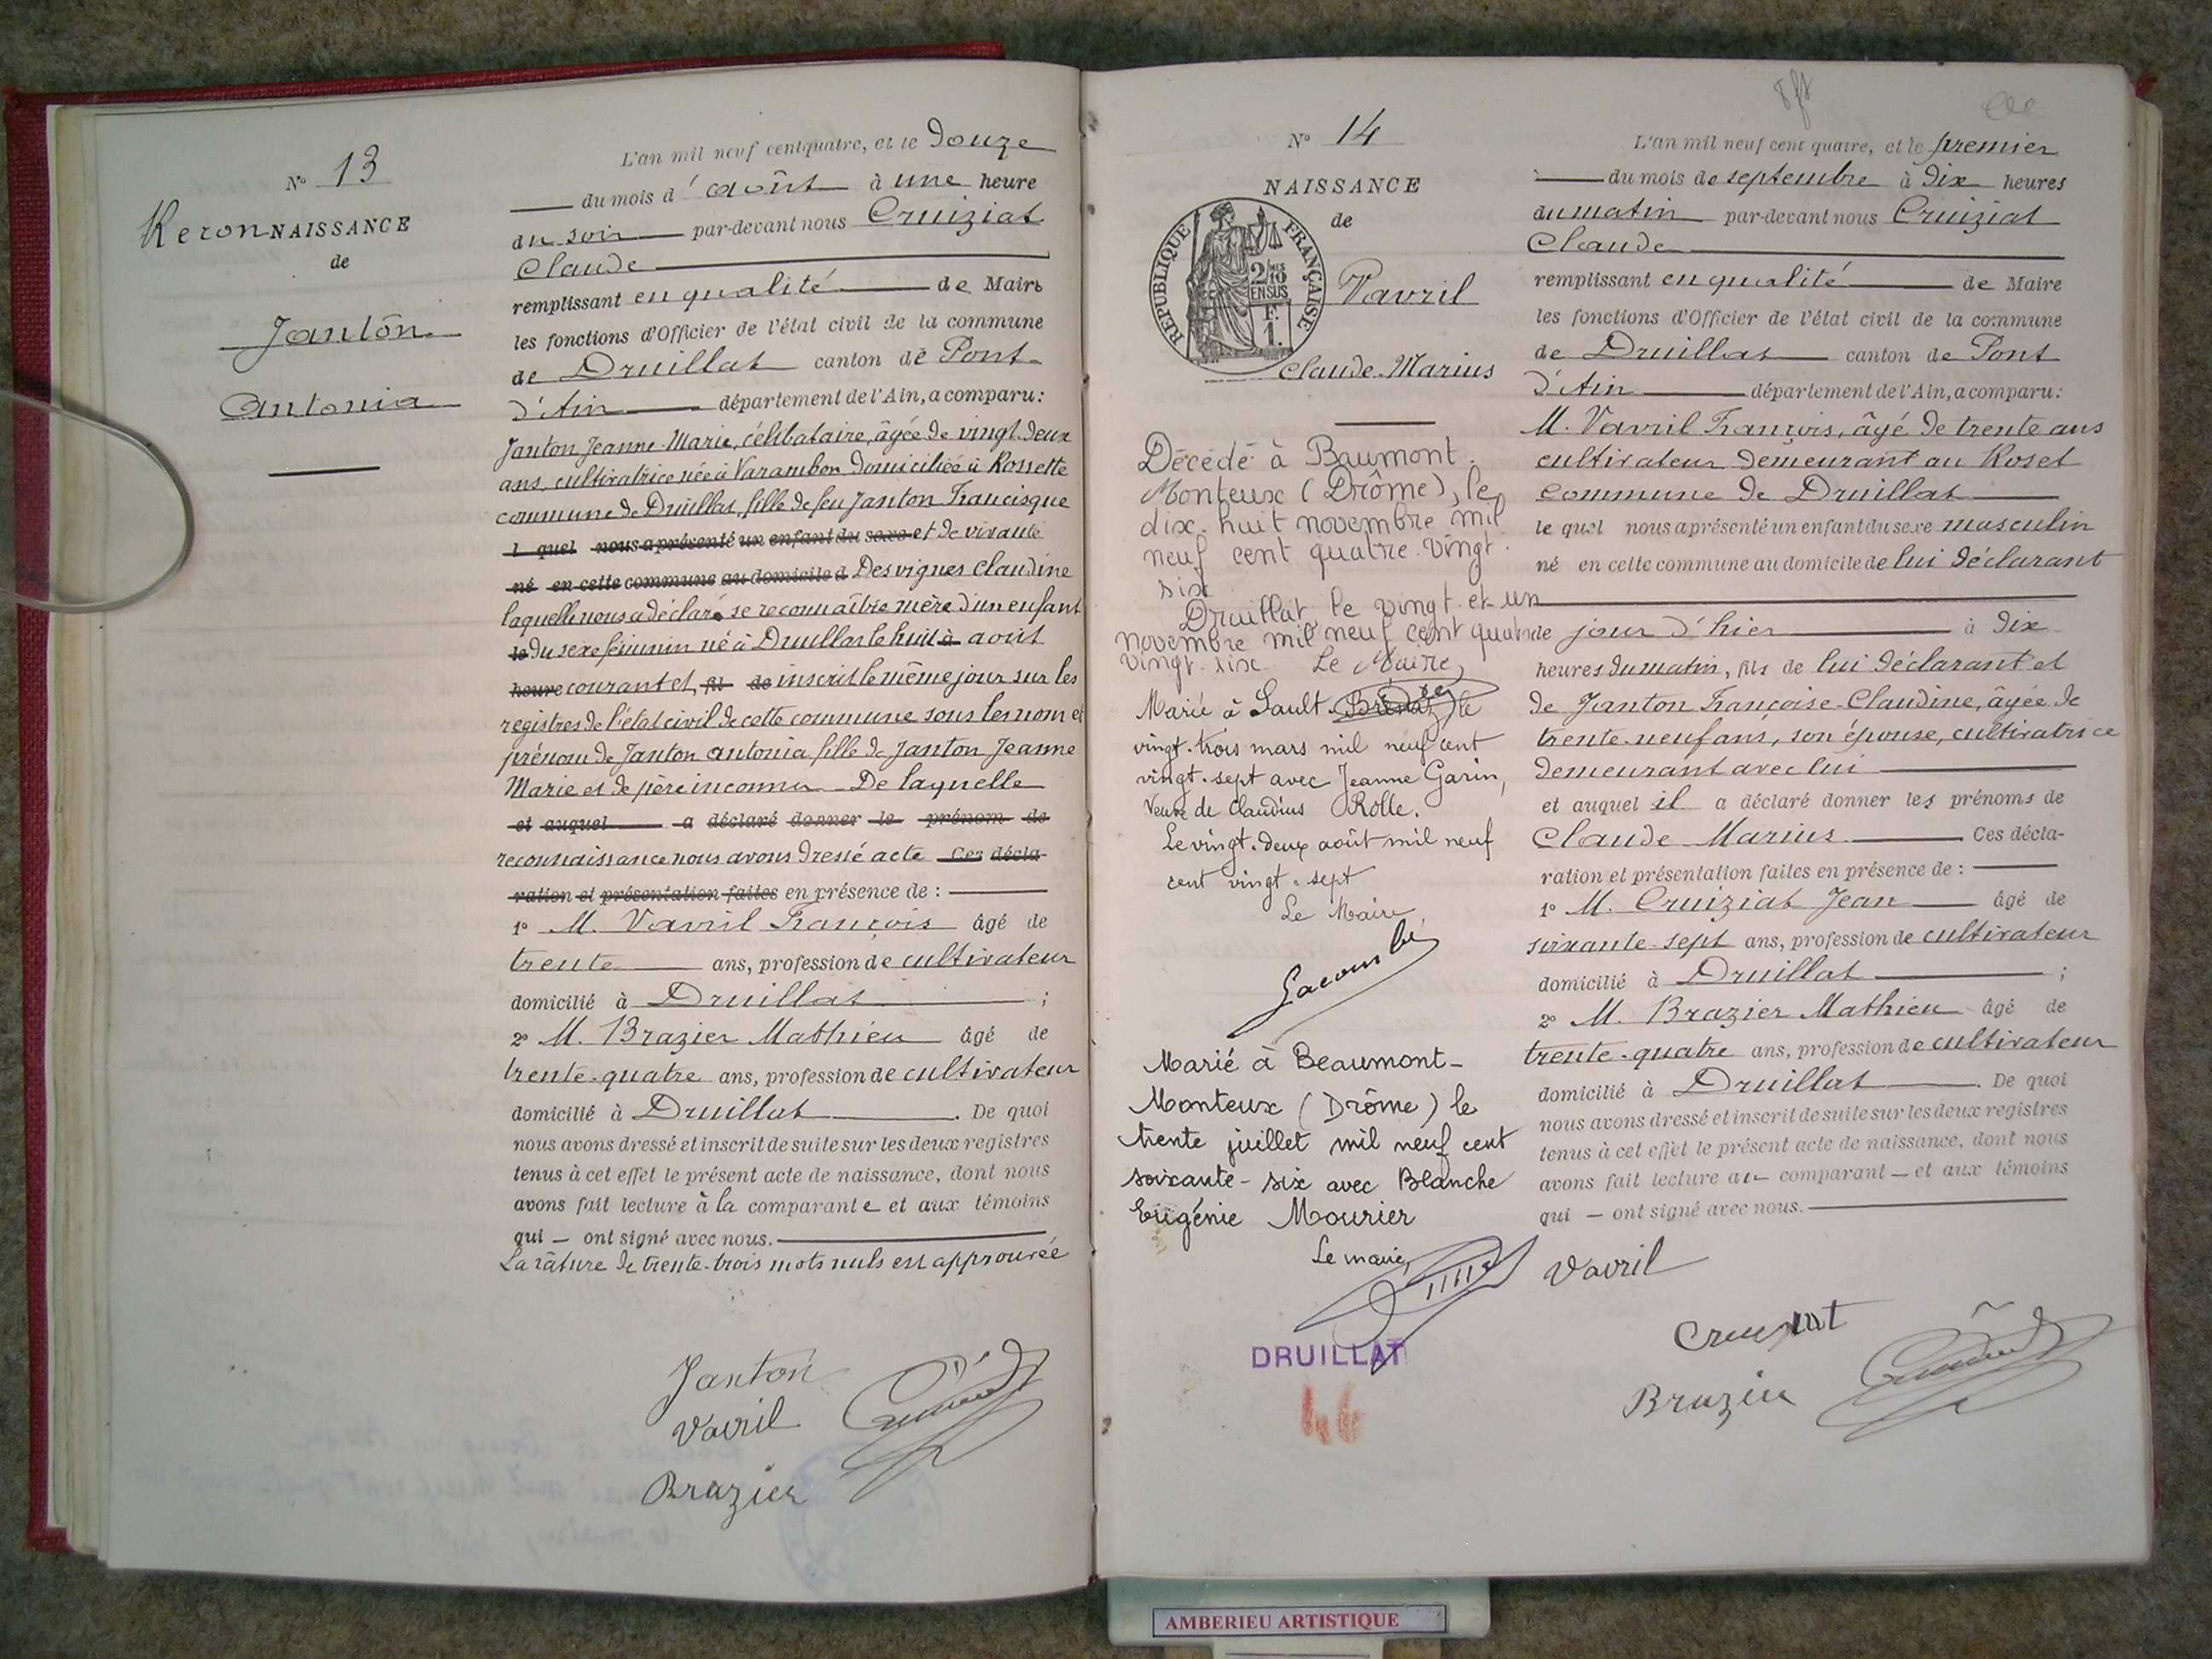 N° 13
Reconnaissance
de
Janton
Antonia
L'an mil neuf cent quatre, et le douze
du mois d'août à une heure
du soir par-devant nous Cruiziat
Claude
remplissant en qualité de Maire
les fonctions d'Officier de l'état civil de la commune
de Druillat canton de Pont-
d'Ain département de l'Ain, a comparu:
Janton Jeanne-Marie, célibataire, âgée de vingt-deux
ans, cultivatrice née à Varambon domiciliée à Rossette
commune de Druillat, fille de feu Janton Francisque
l quel nous a présenté un enfant du sexe et de vivante
né en cette commune au domicile d Desvignes Claudine
laquelle nous a déclaré se reconnaître mère d'un enfant
le du sexe féminin né à Druillat le huit à août
heure courant et, fil de inscrit le même jour sur les
registres de l'état civil de cette commune sous les nom et
prénom de Janton Antonia fille de Janton Jeanne
Marie et de père inconnu - De laquelle
et auquel a déclaré donner le prénom de
reconnaissance nous avons dressé acte Ces décla-
ration et présentation faites en présence de :
1° M. Vavril François âgé de
trente ans, profession de cultivateur
domicilié à Druillat ;
2° M. Brazier Mathieu âgé de
trente-quatre ans, profession de cultivateur
domicilié à Druillat . De quoi
nous avons dressé et inscrit de suite sur les deux registres
tenus à cet effet le présent acte de naissance, dont nous
avons fait lecture à la comparante et aux témoins
qui — ont signé avec nous.
La râture de trente-trois mots nuls est approuvée
Janton
Vavril
Brazier
N° 14
NAISSANCE
de
RÉPUBLIQUE FRANÇAISE
2/10 MES
EN SUS
F.
1.
Vavril
Claude-Marius
Décédé à Baumont.
Monteux (Drôme), le
dix-huit novembre mil
neuf cent quatre-vingt-
six
Druillat, le vingt-et-un
novembre mil neuf cent quatre
vingt-six Le Maire,
Marié à Sault-Brénaz le
vingt-trois mars mil neuf cent
vingt-sept avec Jeanne Garin,
Veuve de Claudius Rolle.
Le vingt-deux août mil neuf
cent vingt-sept
Le Maire,
Marié à Beaumont-
Monteux (Drôme) le
trente juillet mil neuf cent
soixante-six avec Blanche
Eugénie Mourier
Le maire,
DRUILLAT
46
L'an mil neuf cent quatre, et le premier
du mois de septembre à dix heures
du matin par-devant nous Cruiziat
Claude
remplissant en qualité de Maire
les fonctions d'Officier de l'état civil de la commune
de Druillat canton de Pont
d'Ain département de l'Ain, a comparu:
M. Vavril François, âgé de trente ans
cultivateur demeurant au Roset
commune de Druillat
le quel nous a présenté un enfant du sexe masculin
né en cette commune au domicile de lui déclarant
de jour d'hier à dix
heures du matin, fils de lui déclarant et
de Janton Françoise-Claudine, âgée de
trente-neuf ans, son épouse, cultivatrice
demeurant avec lui
et auquel il a déclaré donner les prénoms de
Claude Marius. Ces décla-
ration et présentation faites en présence de :
1° M. Cruiziat Jean âgé de
soixante-sept ans, profession de cultivateur
domicilié à Druillat ;
2° M. Brazier Mathieu âgé de
trente-quatre ans, profession de cultivateur
domicilié à Druillat . De quoi
nous avons dressé et inscrit de suite sur les deux registres
tenus à cet effet le présent acte de naissance, dont nous
avons fait lecture au comparant — et aux témoins
qui — ont signé avec nous.
Vavril
Brazier
AMBERIEU ARTISTIQUE